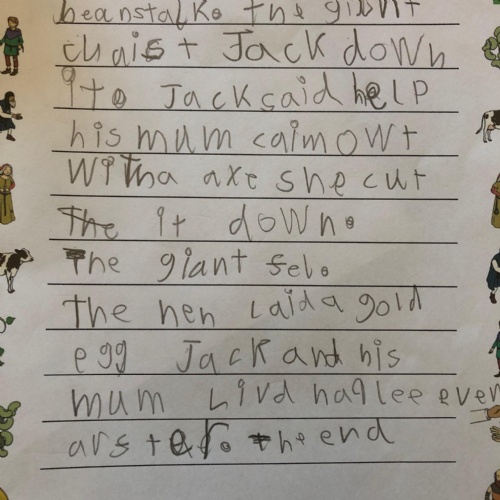 beanstalk. the giant
chaist Jack down
it. Jack said help
his mum caim owt
with a axe she cut
The it down.
The giant fel.
the hen laid a gold
egg Jack and his
mum Livd hapLee ever
arster. the end